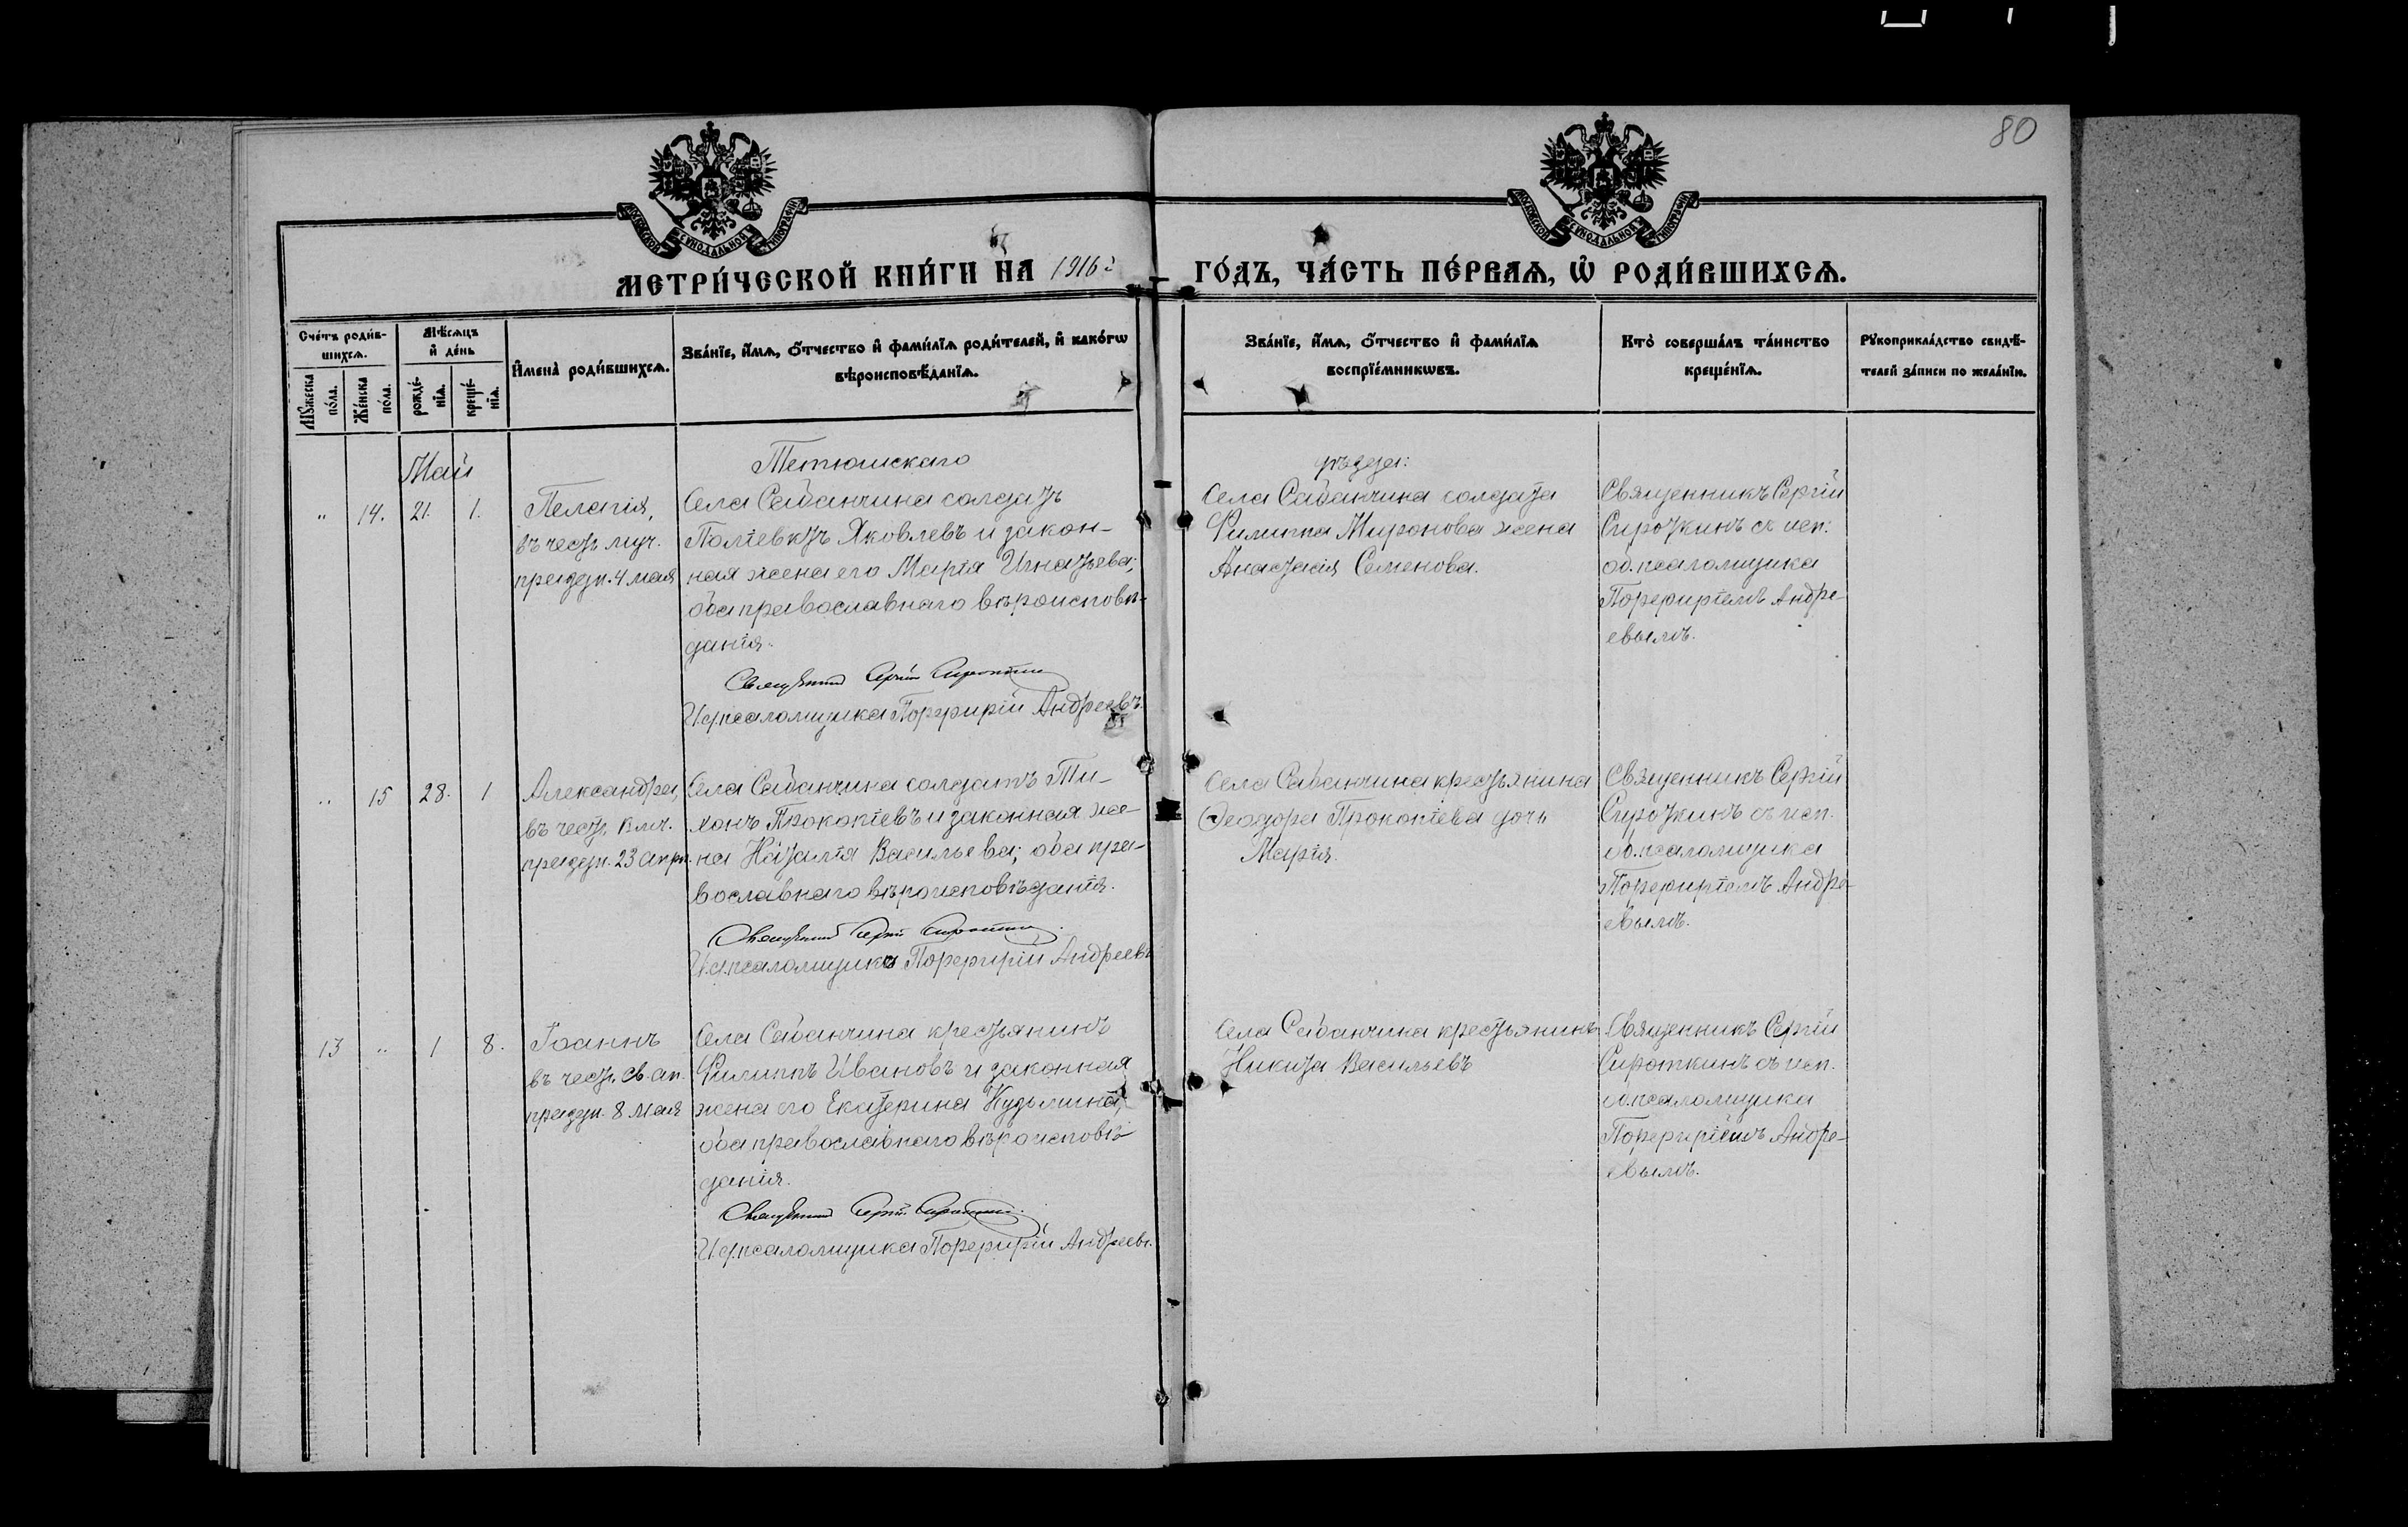 80
МОСКОВСКОЙ СѴНОДАЛЬНОЙ ТИПОГРАФІИ
МОСКОВСКОЙ СѴНОДАЛЬНОЙ ТИПОГРАФІИ
МЕТРИ́ЧЕСКОЙ КНИ́ГИ НА 1916 г. ГО́ДЪ, ЧА́СТЬ ПЕ́РВАѦ, Ѡ РОДИ́ВШИХСѦ.
Сче́тъ роди́в-
шихсѧ.
Мꙋжеска по́ла.
Же́нска по́ла.
Мѣ́сѧцъ и де́нь
рожде́-
нїѧ.
креще́-
нїѧ.
Имена̀ роди́вшихсѧ.
Зва́нїе, и́мѧ, о́тчество и фами́лїѧ роди́телей, и како́гѡ
вѣроисповѣ́данїѧ.
Зва́нїе, и́мѧ, о́тчество и фами́лїѧ
воспрїе́мникѡвъ.
Кто̀ соверша́лъ та́инство
креще́нїѧ.
Рꙋкоприкла́дство свидѣ́-
телей за́писи по жела́нїю.
Май
Тетюшскаго уѣзда:
" 14. 21. 1.
Пелагія,
въ честь муч.
праздн. 4 мая
Села Сабанчина солдатъ
Полїевктъ Яковлевъ и закон-
ная жена его Марія Игнатьева;
оба православнаго вѣроисповѣ-
данія.
Священникъ Сергій Сироткинъ
И. д. псаломщика Порфирій Андреевъ.
Села Сабанчина солдата
Филиппа Миронова жена
Анастасія Семенова.
Священникъ Сергій
Сироткинъ съ исп.
об. псаломщика
Порфиріемъ Андре-
евымъ.
" 15 28. 1
Александра,
въ честь влмч.
праздн. 23 апр.
Села Сабанчина солдатъ Ти-
хонъ Прокопіевъ и законная же-
на Наталія Васильева; оба пра-
вославнаго вѣроисповѣданія.
Священникъ Сергій Сироткинъ.
И. д. псаломщика Порфирій Андреевъ
Села Сабанчина крестьянина
Ѳеодора Прокопіева дочь
Марія.
Священникъ Сергій
Сироткинъ съ исп.
об. псаломщика
Порфиріемъ Андре-
евымъ.
13 " 1 8.
Іоаннъ
въ честь св. ап.
праздн. 8 мая
Села Сабанчина крестьянинъ
Филиппъ Ивановъ и законная
жена его Екатерина Кудьмина;
оба православнаго вѣроисповѣ-
данія.
Священникъ Сергій Сироткинъ.
И. д. псаломщика Порфирій Андреевъ.
Села Сабанчина крестьянинъ
Никита Васильевъ
Священникъ Сергій
Сироткинъ съ исп.
об. псаломщика
Порфиріемъ Андре-
евымъ.